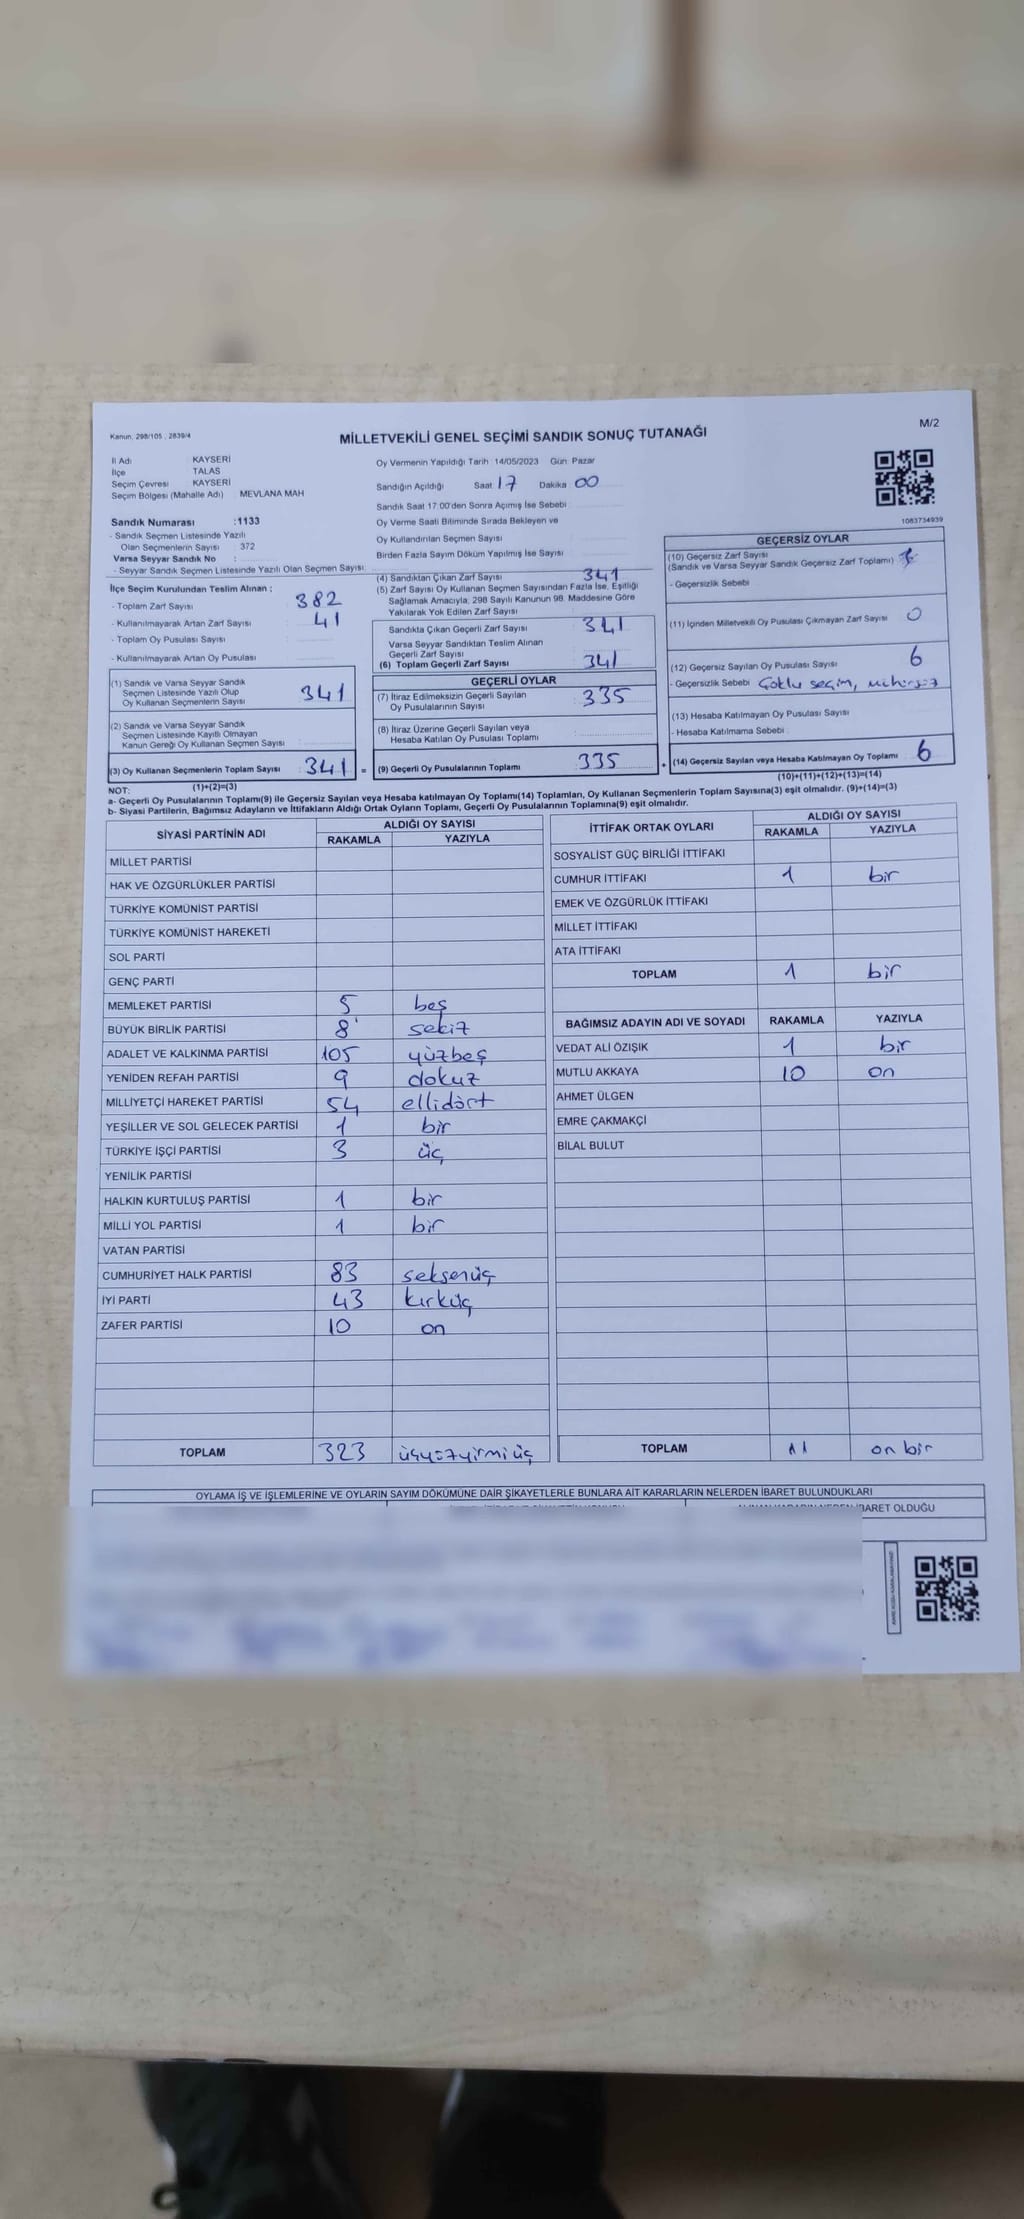 Kanun. 298/105 , 2839/4
MİLLETVEKİLİ GENEL SEÇİMİ SANDIK SONUÇ TUTANAĞI
M/2
İl Adı KAYSERİ
İlçe TALAS
Seçim Çevresi KAYSERİ
Seçim Bölgesi (Mahalle Adı) MEVLANA MAH
Sandık Numarası :1133
- Sandık Seçmen Listesinde Yazılı
Olan Seçmenlerin Sayısı : 372
Varsa Seyyar Sandık No
- Seyyar Sandık Seçmen Listesinde Yazılı Olan Seçmen Sayısı:
İlçe Seçim Kurulundan Teslim Alınan ;
- Toplam Zarf Sayısı 382
- Kullanılmayarak Artan Zarf Sayısı 41
- Toplam Oy Pusulası Sayısı
- Kullanılmayarak Artan Oy Pusulası
(1) Sandık ve Varsa Seyyar Sandık
Seçmen Listesinde Yazılı Olup
Oy Kullanan Seçmenlerin Sayısı 341
(2) Sandık ve Varsa Seyyar Sandık
Seçmen Listesinde Kayıtlı Olmayan
Kanun Gereği Oy Kullanan Seçmen Sayısı
(3) Oy Kullanan Seçmenlerin Toplam Sayısı 341 =
(1)+(2)=(3)
Oy Vermenin Yapıldığı Tarih :14/05/2023 Gün: Pazar
Sandığın Açıldığı Saat: 17 Dakika: 00
Sandık Saat 17:00'den Sonra Açımış İse Sebebi
Oy Verme Saati Bitiminde Sırada Bekleyen ve
Oy Kullandırılan Seçmen Sayısı
Birden Fazla Sayım Döküm Yapılmış İse Sayısı
(4) Sandıktan Çıkan Zarf Sayısı 341
(5) Zarf Sayısı Oy Kullanan Seçmen Sayısından Fazla İse, Eşitliği
Sağlamak Amacıyla, 298 Sayılı Kanunun 98. Maddesine Göre
Yakılarak Yok Edilen Zarf Sayısı
Sandıkta Çıkan Geçerli Zarf Sayısı 341
Varsa Seyyar Sandıktan Teslim Alınan
Geçerli Zarf Sayısı
(6) Toplam Geçerli Zarf Sayısı 341
GEÇERLİ OYLAR
(7) İtiraz Edilmeksizin Geçerli Sayılan
Oy Pusulalarının Sayısı 335
(8) İtiraz Üzerine Geçerli Sayılan veya
Hesaba Katılan Oy Pusulası Toplamı
(9) Geçerli Oy Pusulalarının Toplamı 335 +
1083734939
GEÇERSİZ OYLAR
(10) Geçersiz Zarf Sayısı
(Sandık ve Varsa Seyyar Sandık Geçersiz Zarf Toplamı)
- Geçersizlik Sebebi
(11) İçinden Milletvekili Oy Pusulası Çıkmayan Zarf Sayısı 0
(12) Geçersiz Sayılan Oy Pusulası Sayısı 6
- Geçersizlik Sebebi Çoklu seçim, mühürsüz
(13) Hesaba Katılmayan Oy Pusulası Sayısı
- Hesaba Katılmama Sebebi
(14) Geçersiz Sayılan veya Hesaba Katılmayan Oy Toplamı 6
(10)+(11)+(12)+(13)=(14)
NOT:
a- Geçerli Oy Pusulalarının Toplamı(9) ile Geçersiz Sayılan veya Hesaba katılmayan Oy Toplamı(14) Toplamları, Oy Kullanan Seçmenlerin Toplam Sayısına(3) eşit olmalıdır. (9)+(14)=(3)
b- Siyasi Partilerin, Bağımsız Adayların ve İttifakların Aldığı Ortak Oyların Toplamı, Geçerli Oy Pusulalarının Toplamına(9) eşit olmalıdır.
SİYASİ PARTİNİN ADI ALDIĞI OY SAYISI
RAKAMLA YAZIYLA
MİLLET PARTİSİ
HAK VE ÖZGÜRLÜKLER PARTİSİ
TÜRKİYE KOMÜNİST PARTİSİ
TÜRKİYE KOMÜNİST HAREKETİ
SOL PARTİ
GENÇ PARTİ
MEMLEKET PARTİSİ 5 beş
BÜYÜK BİRLİK PARTİSİ 8 sekiz
ADALET VE KALKINMA PARTİSİ 105 yüzbeş
YENİDEN REFAH PARTİSİ 9 dokuz
MİLLİYETÇİ HAREKET PARTİSİ 54 ellidört
YEŞİLLER VE SOL GELECEK PARTİSİ 1 bir
TÜRKİYE İŞÇİ PARTİSİ 3 üç
YENİLİK PARTİSİ
HALKIN KURTULUŞ PARTİSİ 1 bir
MİLLİ YOL PARTİSİ 1 bir
VATAN PARTİSİ
CUMHURİYET HALK PARTİSİ 83 seksenüç
İYİ PARTİ 43 kırküç
ZAFER PARTİSİ 10 on
TOPLAM 323 üçyüzyirmiüç
İTTİFAK ORTAK OYLARI ALDIĞI OY SAYISI
RAKAMLA YAZIYLA
SOSYALİST GÜÇ BİRLİĞİ İTTİFAKI
CUMHUR İTTİFAKI 1 bir
EMEK VE ÖZGÜRLÜK İTTİFAKI
MİLLET İTTİFAKI
ATA İTTİFAKI
TOPLAM 1 bir
BAĞIMSIZ ADAYIN ADI VE SOYADI RAKAMLA YAZIYLA
VEDAT ALİ ÖZIŞIK 1 bir
MUTLU AKKAYA 10 on
AHMET ÜLGEN
EMRE ÇAKMAKÇİ
BİLAL BULUT
TOPLAM 11 on bir
OYLAMA İŞ VE İŞLEMLERİNE VE OYLARIN SAYIM DÖKÜMÜNE DAİR ŞİKAYETLERLE BUNLARA AİT KARARLARIN NELERDEN İBARET BULUNDUKLARI
İBARET OLDUĞU